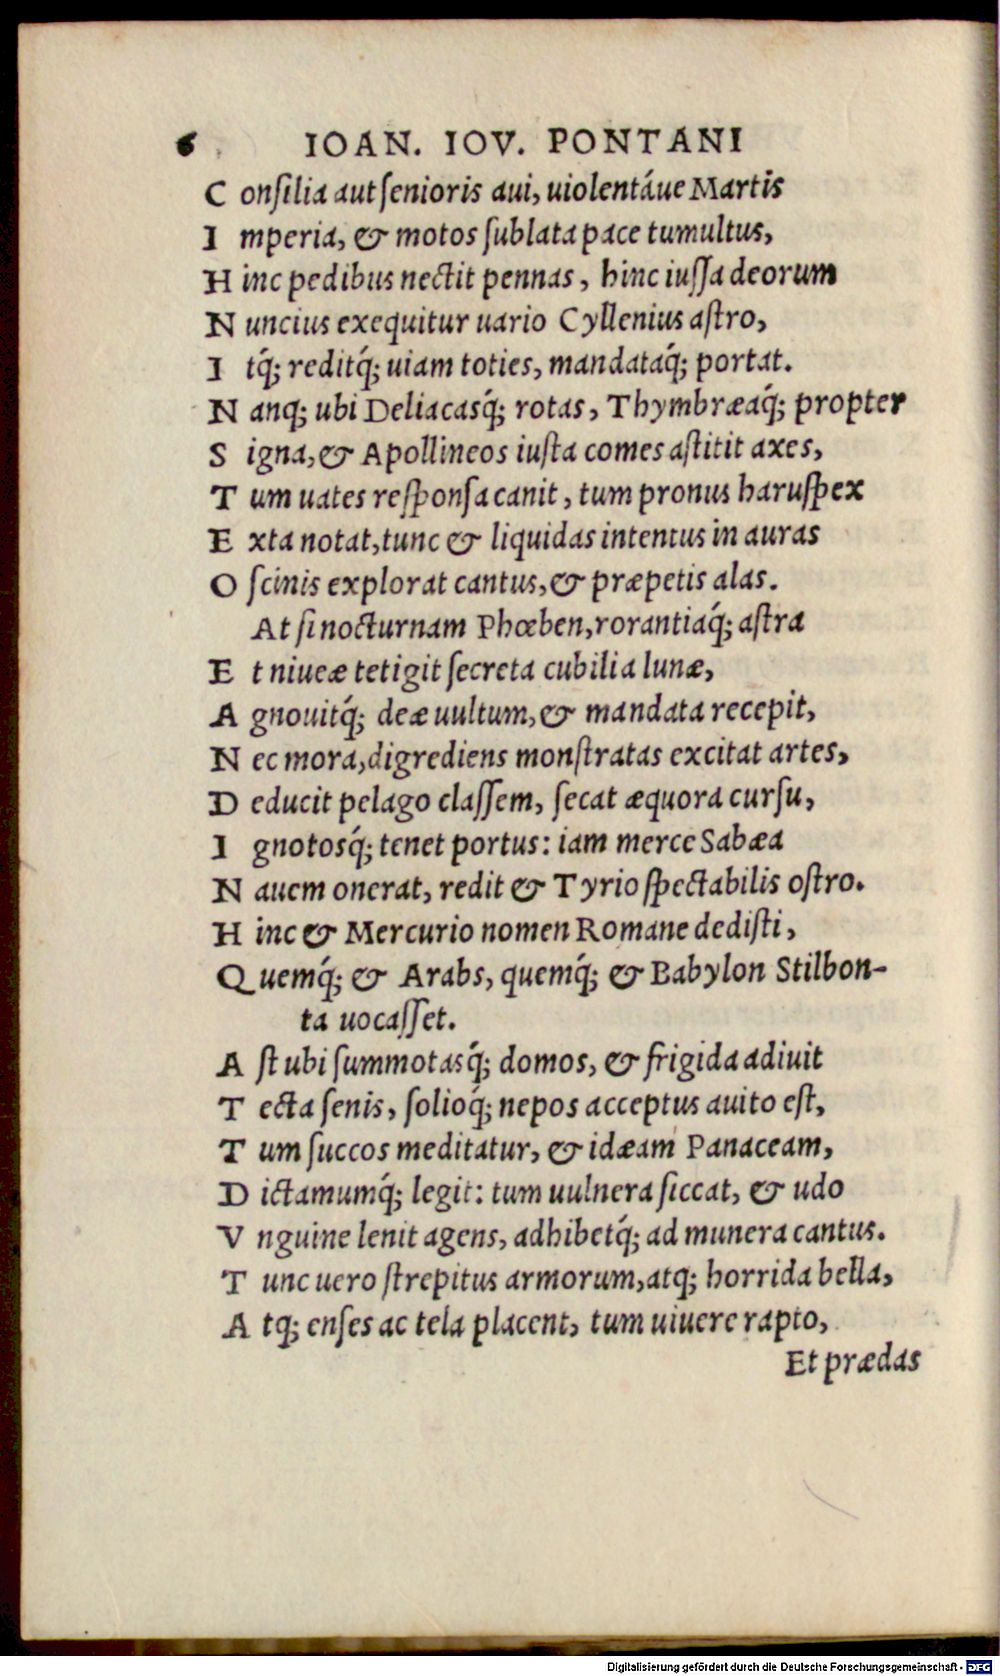 6 IOAN. IOV. PONTANI
Conſilia aut ſenioris aui, uiolentáue Martis
Imperia, & motos ſublata pace tumultus,
Hinc pedibus nectit pennas, hinc iuſſa deorum
Nuncius exequitur uario Cyllenius aſtro,
Itq́; reditq́; uiam toties, mandataq́; portat.
Nanq; ubi Deliacasq́; rotas, Thymbræaq́; propter
Signa, & Apollineos iuſta comes aſtitit axes,
Tum uates reſponſa canit, tum pronus haruſpex
Exta notat, tunc & liquidas intentus in auras
Oſcinis explorat cantus, & præpetis alas.
At ſi nocturnam Phœben, rorantiaq́; aſtra
Et niueæ tetigit ſecreta cubilia lunæ,
Agnouitq́; deæ uultum, & mandata recepit,
Nec mora, digrediens monſtratas excitat artes,
Deducit pelago claſſem, ſecat æquora curſu,
Ignotosq́; tenet portus: iam merce Sabæa
Nauem onerat, redit & Tyrio ſpectabilis oſtro.
Hinc & Mercurio nomen Romane dediſti,
Quemq́; & Arabs, quemq́; & Babylon Stilbon-
ta uocaſſet.
Aſt ubi ſummotasq́; domos, & frigida adiuit
Tecta ſenis, ſolioq́; nepos acceptus auito eſt,
Tum ſuccos meditatur, & idæam Panaceam,
Dictamumq́; legit: tum uulnera ſiccat, & udo
Vnguine lenit agens, adhibetq́; ad munera cantus.
Tunc uero ſtrepitus armorum, atq; horrida bella,
Atq; enſes ac tela placent, tum uiuere rapto,
Et prædas
Digitalisierung gefördert durch die Deutsche Forschungsgemeinschaft - DFG